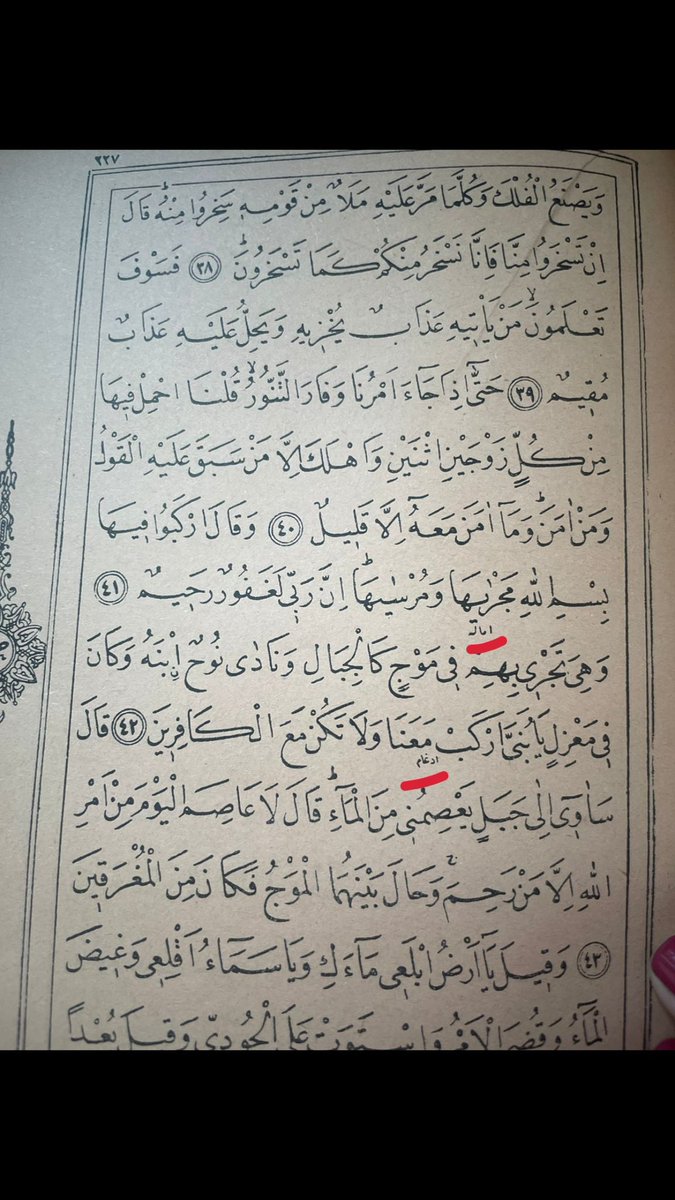 ٢٢٧
وَيَصْنَعُ الْفُلْكَ وَكُلَّمَا مَرَّ عَلَيْهِ مَلَأٌ مِنْ قَوْمِهٖ سَخِرُوا مِنْهُۜ قَالَ
اِنْ تَسْخَرُوا مِنَّا فَاِنَّا نَسْخَرُ مِنْكُمْ كَمَا تَسْخَرُونَۜ ﴿٣٨﴾ فَسَوْفَ
تَعْلَمُونَۙ مَنْ يَأْتٖيهِ عَذَابٌ يُخْزٖيهِ وَيَحِلُّ عَلَيْهِ عَذَابٌ
مُقٖيمٌ ﴿٣٩﴾ حَتّٰٓى اِذَا جَٓاءَ اَمْرُنَا وَفَارَ التَّنُّورُۙ قُلْنَا احْمِلْ فٖيهَا
مِنْ كُلٍّ زَوْجَيْنِ اثْنَيْنِ وَاَهْلَكَ اِلَّا مَنْ سَبَقَ عَلَيْهِ الْقَوْلُ
وَمَنْ اٰمَنَۜ وَمَٓا اٰمَنَ مَعَهُٓ اِلَّا قَلٖيلٌ ﴿٤٠﴾ وَقَالَ ارْكَبُوا فٖيهَا
بِسْمِ اللّٰهِ مَجْرٰۭۙيهَا وَمُرْسٰيهَاۜ اِنَّ رَبّٖي لَغَفُورٌ رَحٖيمٌ ﴿٤١﴾
اماله
وَهِيَ تَجْرٖي بِهِمْ فٖي مَوْجٍ كَالْجِبَالِ وَنَادٰى نُوحٌۨ ابْنَهُ وَكَانَ
فٖي مَعْزِلٍ يَا بُنَيَّ ارْكَبْ مَعَنَا وَلَا تَكُنْ مَعَ الْكَافِرٖينَ ﴿٤٢﴾ قَالَ
ادغام
سَاٰوٖٓي اِلٰى جَبَلٍ يَعْصِمُنٖي مِنَ الْمَٓاءِۜ قَالَ لَا عَاصِمَ الْيَوْمَ مِنْ اَمْرِ
اللّٰهِ اِلَّا مَنْ رَحِمَۚ وَحَالَ بَيْنَهُمَا الْمَوْجُ فَكَانَ مِنَ الْمُغْرَقٖينَ
﴿٤٣﴾ وَقٖيلَ يَٓا اَرْضُ ابْلَعٖي مَٓاءَكِ وَيَا سَمَٓاءُ اَقْلِعٖي وَغٖيضَ
الْمَٓاءُ وَقُضِيَ الْاَمْرُ وَاسْتَوَتْ عَلَى الْجُودِيِّ وَقٖيلَ بُعْدًا